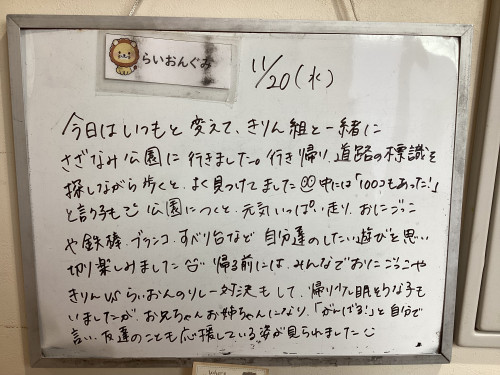 らいおんぐみ
11/20(水)
今日はいつもと変えて、きりん組と一緒に
さざなみ公園に行きました。行き帰り、道路の標識を
探しながら歩くと、よく見つけてました 中には「100コもあった!」
と言う子も 公園につくと、元気いっぱい走り、おにごっこ
や鉄棒、ブランコ、すべり台など自分達のしたい遊びを思い
切り楽しみました 帰る前には、みんなでおにごっこや
きりんVSらいおんのリレー対決もして、帰り少し眠そうな子も
いましたが、お兄ちゃんお姉ちゃんになり、「がんばる!」と自分で
言い、友達のことも応援している姿が見られました